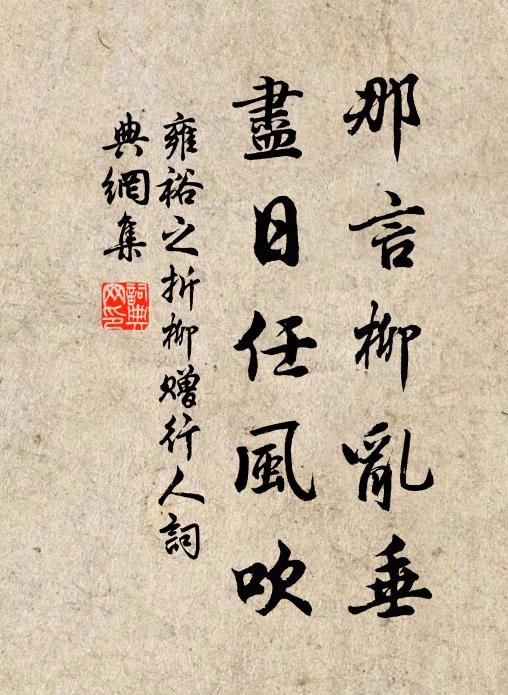 那言柳亂垂
盡日任風吹
雍裕之折柳贈行人詞
典網集
詞典
网印